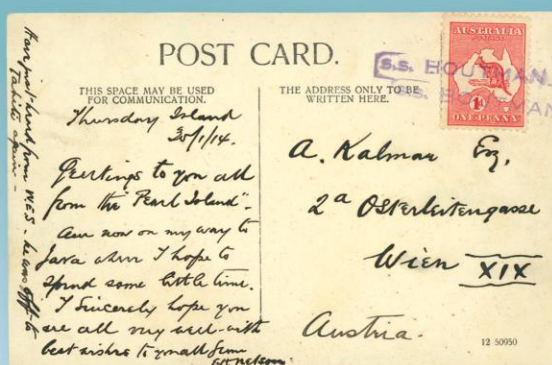 POST CARD.
THIS SPACE MAY BE USED
FOR COMMUNICATION.
THE ADDRESS ONLY TO BE
WRITTEN HERE.
AUSTRALIA
1D
ONE PENNY
S.S. HOUTMAN.
S.S. HOUTMAN
Thursday Island
/1/14.
Greetings to you all
from the "Pearl Island".
Am now on my way to
Java where I hope to
spend some little time.
I sincerely hope you
are all very well - with
best wishes to you all from
Nelson.
Have just heard from W.E.S. - he was off to
Tahiti again -
A. Kalmar Esq.
2a Osterleitengasse
Wien XIX
Austria.
12 50950